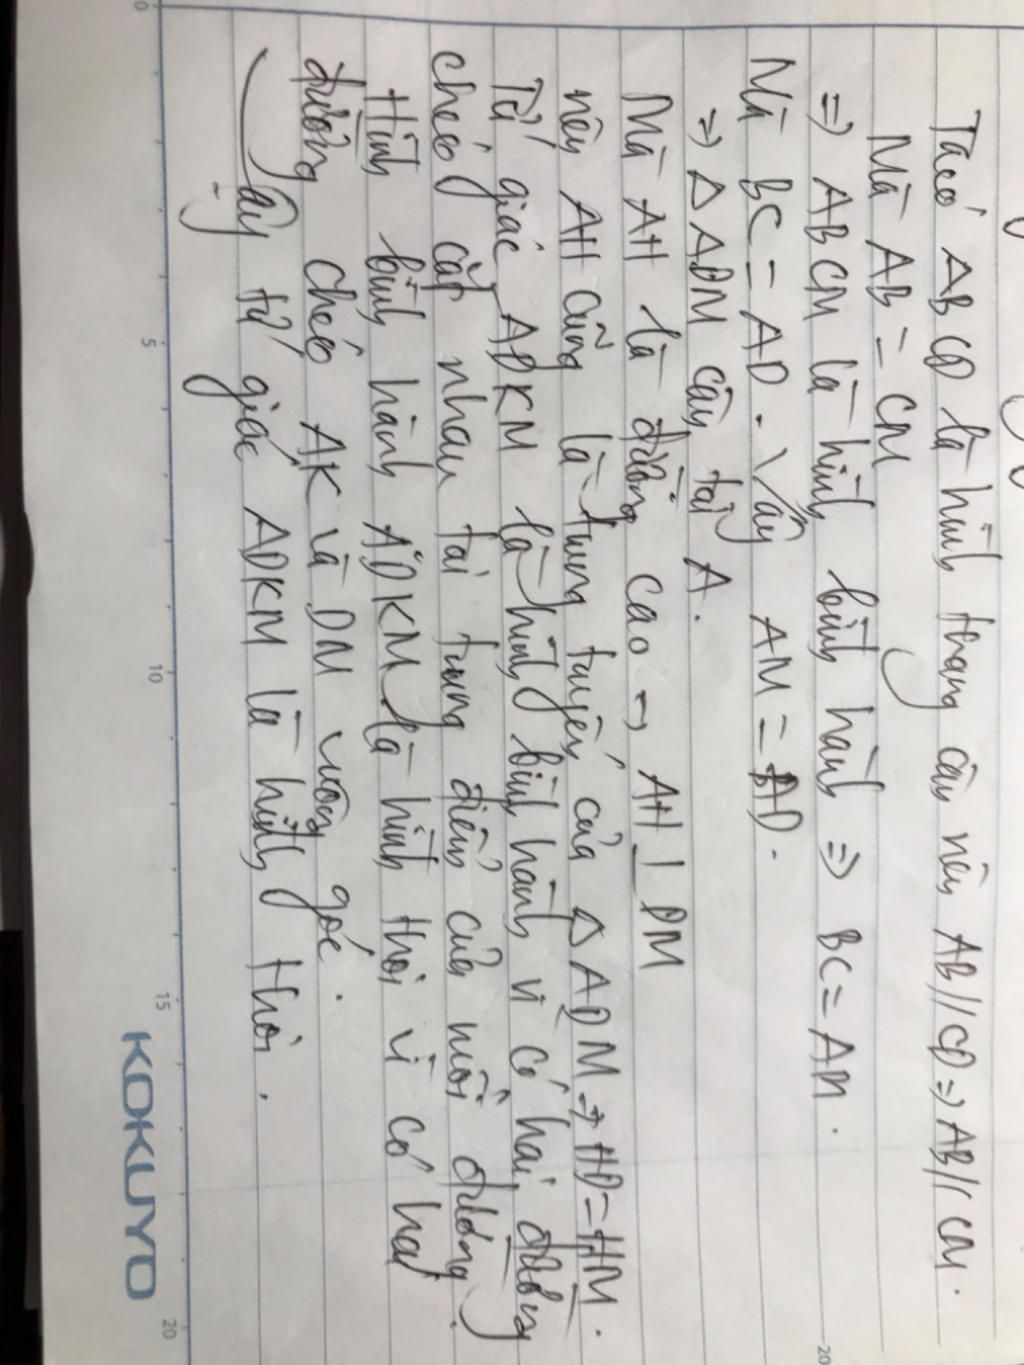 Ta có ABCD là hình thang cân nên AB//CD => AB//CM.
Mà AB = CM
=> ABCM là hình bình hành => BC = AM.
Mà BC = AD. Vậy AM = AD.
=> Δ ADM cân tại A.
Mà AH là đường cao → AH ⊥ DM
nên AH cũng là trung tuyến của Δ ADM => HD = HM.
Tứ giác ADKM là hình bình hành vì có hai đường
chéo cắt nhau tại trung điểm của mỗi đường.
Hình bình hành ADKM là hình thoi vì có hai
đường chéo AK và DM vuông góc.
Vậy tứ giác ADKM là hình thoi.
0 5 10 15 20
KOKUYO
20